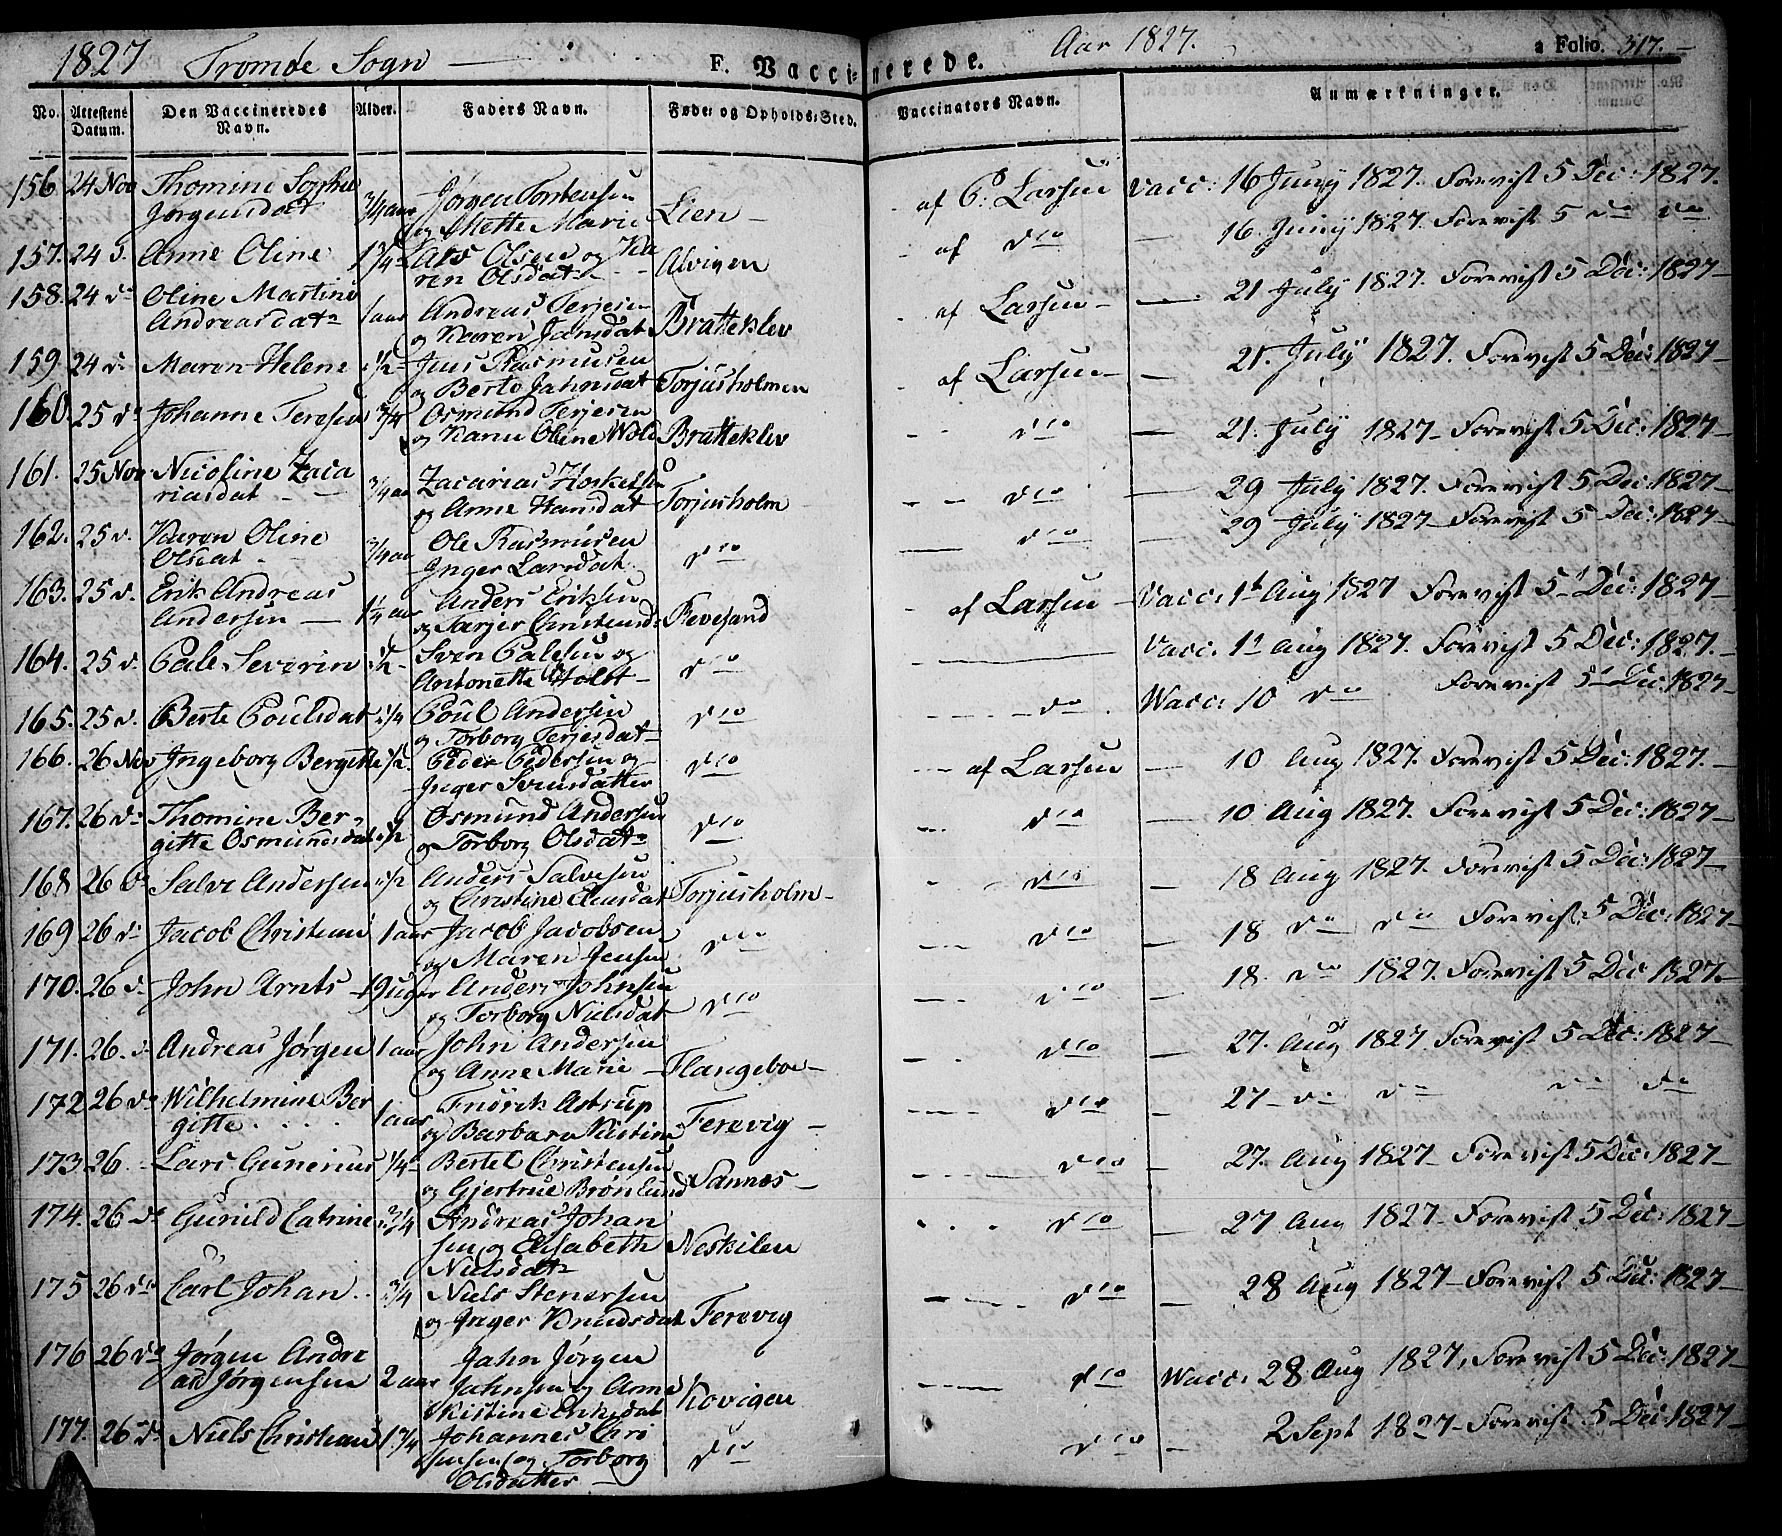 1827 Tromøe Sogn — F. Vaccinerede. Aar 1827. a Folio. 317.
No. Attestens Datum. Den Vaccineredes Navn. Alder. Faders Navn. Føde- og Opholds-Sted. Vaccinators Navn. Anmærkninger.
156 24 Nov Thomine Sophie Jørgensdat 3/4 aar Jørgen Torstensen og Mette Marie Lien — af C: Larsen Vacc: 16 Juny 1827. Forevist 5 Dec: 1827.
157. 24 d. Anne Oline 1 3/4 Lars Olsen og Karen Olsdat Alvigen af dto — 16 Juny 1827. Forevist 5 do do
158. 24 do Oline Martine Andreasdatr 1 aar Andreas Terjesen og Karen Jansdat Bratteklev af Larsen — 21 July 1827. Forevist 5 Dec: 1827
159. 24 d. Maren Helene 1/2 Jens Rasmusen og Berte Jahnsdat Torjusholmen af Larsen — 21. July 1827. Forevist 5 Dec: 1827
160. 25 do Johanne Teresen 3/4 Osmund Terjesen og Karen Oline Bratteklev dto — 21. July 1827 Forevist 5 Dec: 1827
161. 25 Nov Nicoline Zacariasdat 3/4 aar Zacarias og Anne Hansdat Torjusholm dto — 29 July 1827. Forevist 5 Dec: 1827
162. 25 d. Karen Oline Olsdat 3/4 aar Ole Rasmusen Inger Larsdat dto dto — 29 July 1827 Forevist 5 Dec: 1827
163. 25 d. Erik Andreas Andersen 1 1/4 aar Anders Eriksen og Tarjer Christensd. Revesand af Larsen Vacc: 1t Aug 1827 Forevist 5 Dec: 1827
164. 25 d. Pale Severin 1/2 Sven Palesen og Antonette Holst dto — Vacc: 1t Aug 1827. Forevist 5 Dec: 1827.
165. 25 d. Berte Poulsdat 1/4 Poul Andersen og Torborg Terjesdat dto do Wacc: 10 do Forevist 5 Dec. 1827
166. 26 Nov Ingeborg Bergitte 1/2 Peder Pedersen og Inger Svensdatter dto af Larsen — 10 Aug 1827. Forevist 5 Dec: 1827.
167. 26 do Thomine Bergitte Osmunsdat 1/2 Osmund Andersen og Torborg Olsdatr dto dto — 10 Aug 1827. Forevist 5 Dec: 1827
168 26 do Salve Andersen 1/2 Anders Salvesen og Christine Torjusholm dto — 18 Aug 1827. Forevist 5 Dec: 1827
169 26 do Jacob Christian 1 aar Jacob Jacobsen og Maren Jensen dto dto — 18 do do Forevist 5 Dec: 1827
170. 26 do John Arnts 19 Uger Anders Johnsen og Torborg Nielsdat dto dto — 18. do 1827. Forevist 5 Dec: 1827.
171. 26. d. Andreas Jørgen 1 aar John Andersen og Anne Marie Flangeboe dto — 27. Aug 1827 Forevist 5 Dec: 1827
172 26 do Wilhelmine Bergitte 1 aar Fridrik Astrup og Barbara Kistine Ferevig dto — 27 do do do do
173. 26. Lars Gunerius 1/4 Bertel Christensen og Gjertrue Brønlund Sannes dto — 27. Aug 1827 Forevist 5 Dec: 1827
174. 26 do Gunild Catrine 3/4 Andreas Johansen og Elisabeth Nielsdatr Neskilen dto 27 Aug 1827 Forevist 5 Dec: 1827
175 26 do Carl Johan 3/4 Niels Stenersen og Inger Knudsdat Ferevig dto — 28 Aug 1827 Forevist 5 Dec: 1827
176 26 do Jørgen Andreas Jørgensen 2 aar Jahn Jørgen Jahnsen og Anne Kistine Eriksdat Kovigen dto Wacc: 28 Aug 1827. Forevist 5 Dec: 1827
177. 26 d. Niels Christian 1 3/4 Johannes og Torborg Olsdatter dto dto — 2 Sept 1827 Forevist 5 Dec: 1827